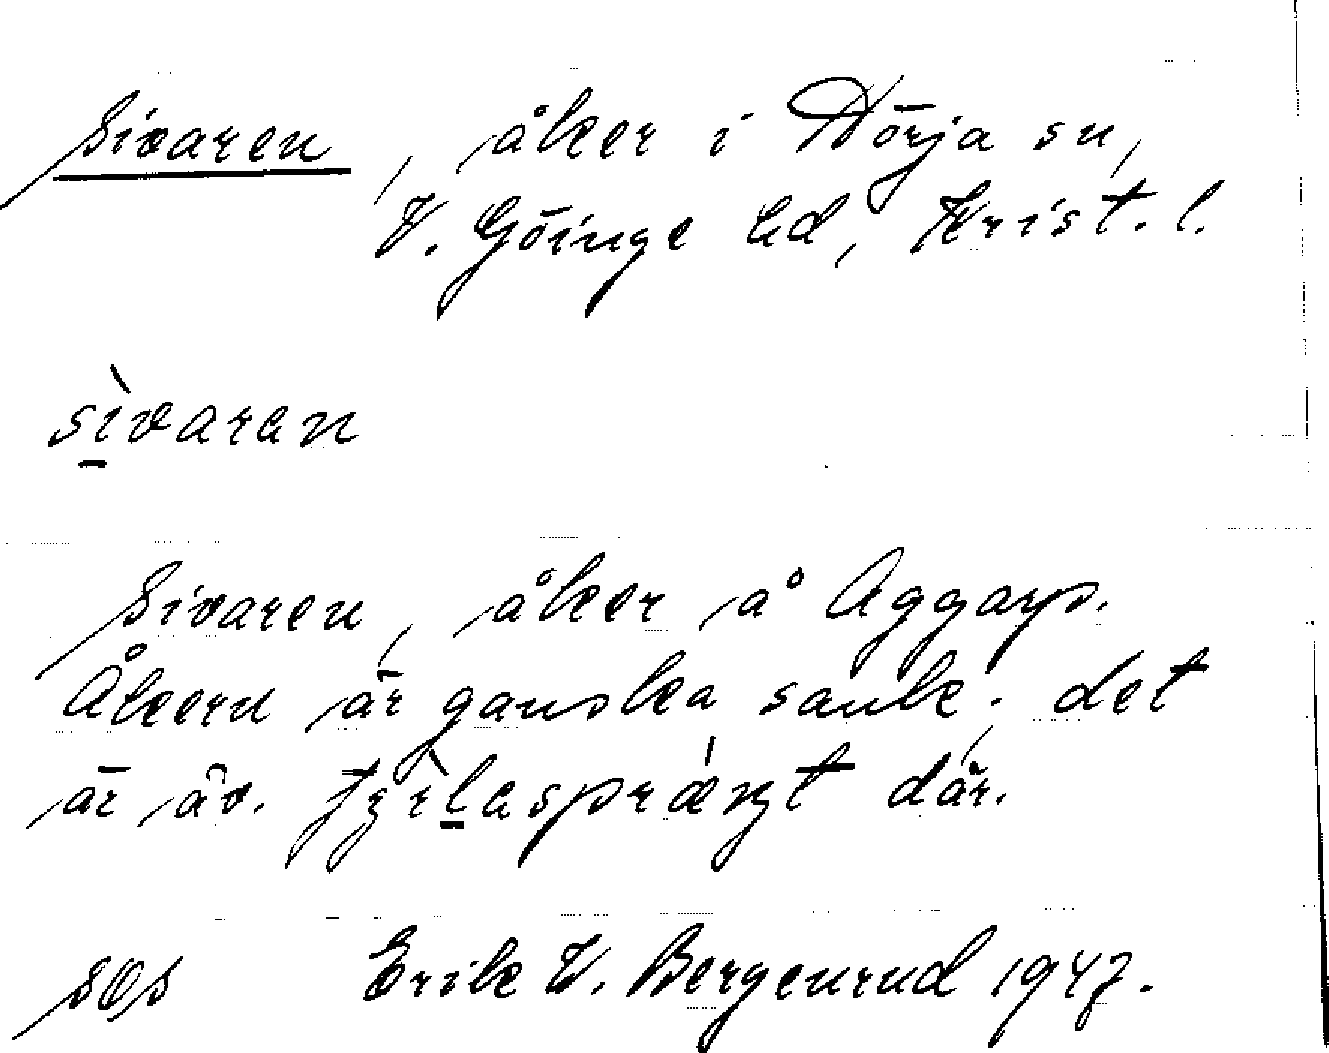 Sivaren, åker i Nörja sn,
V. Göinge hd, Krist. l.
sìvaren
Sivaren, åker å Aggarp.
Åkern är ganska sank; det
är äv. där.
SOS Erik V. Bergenrud 1947.